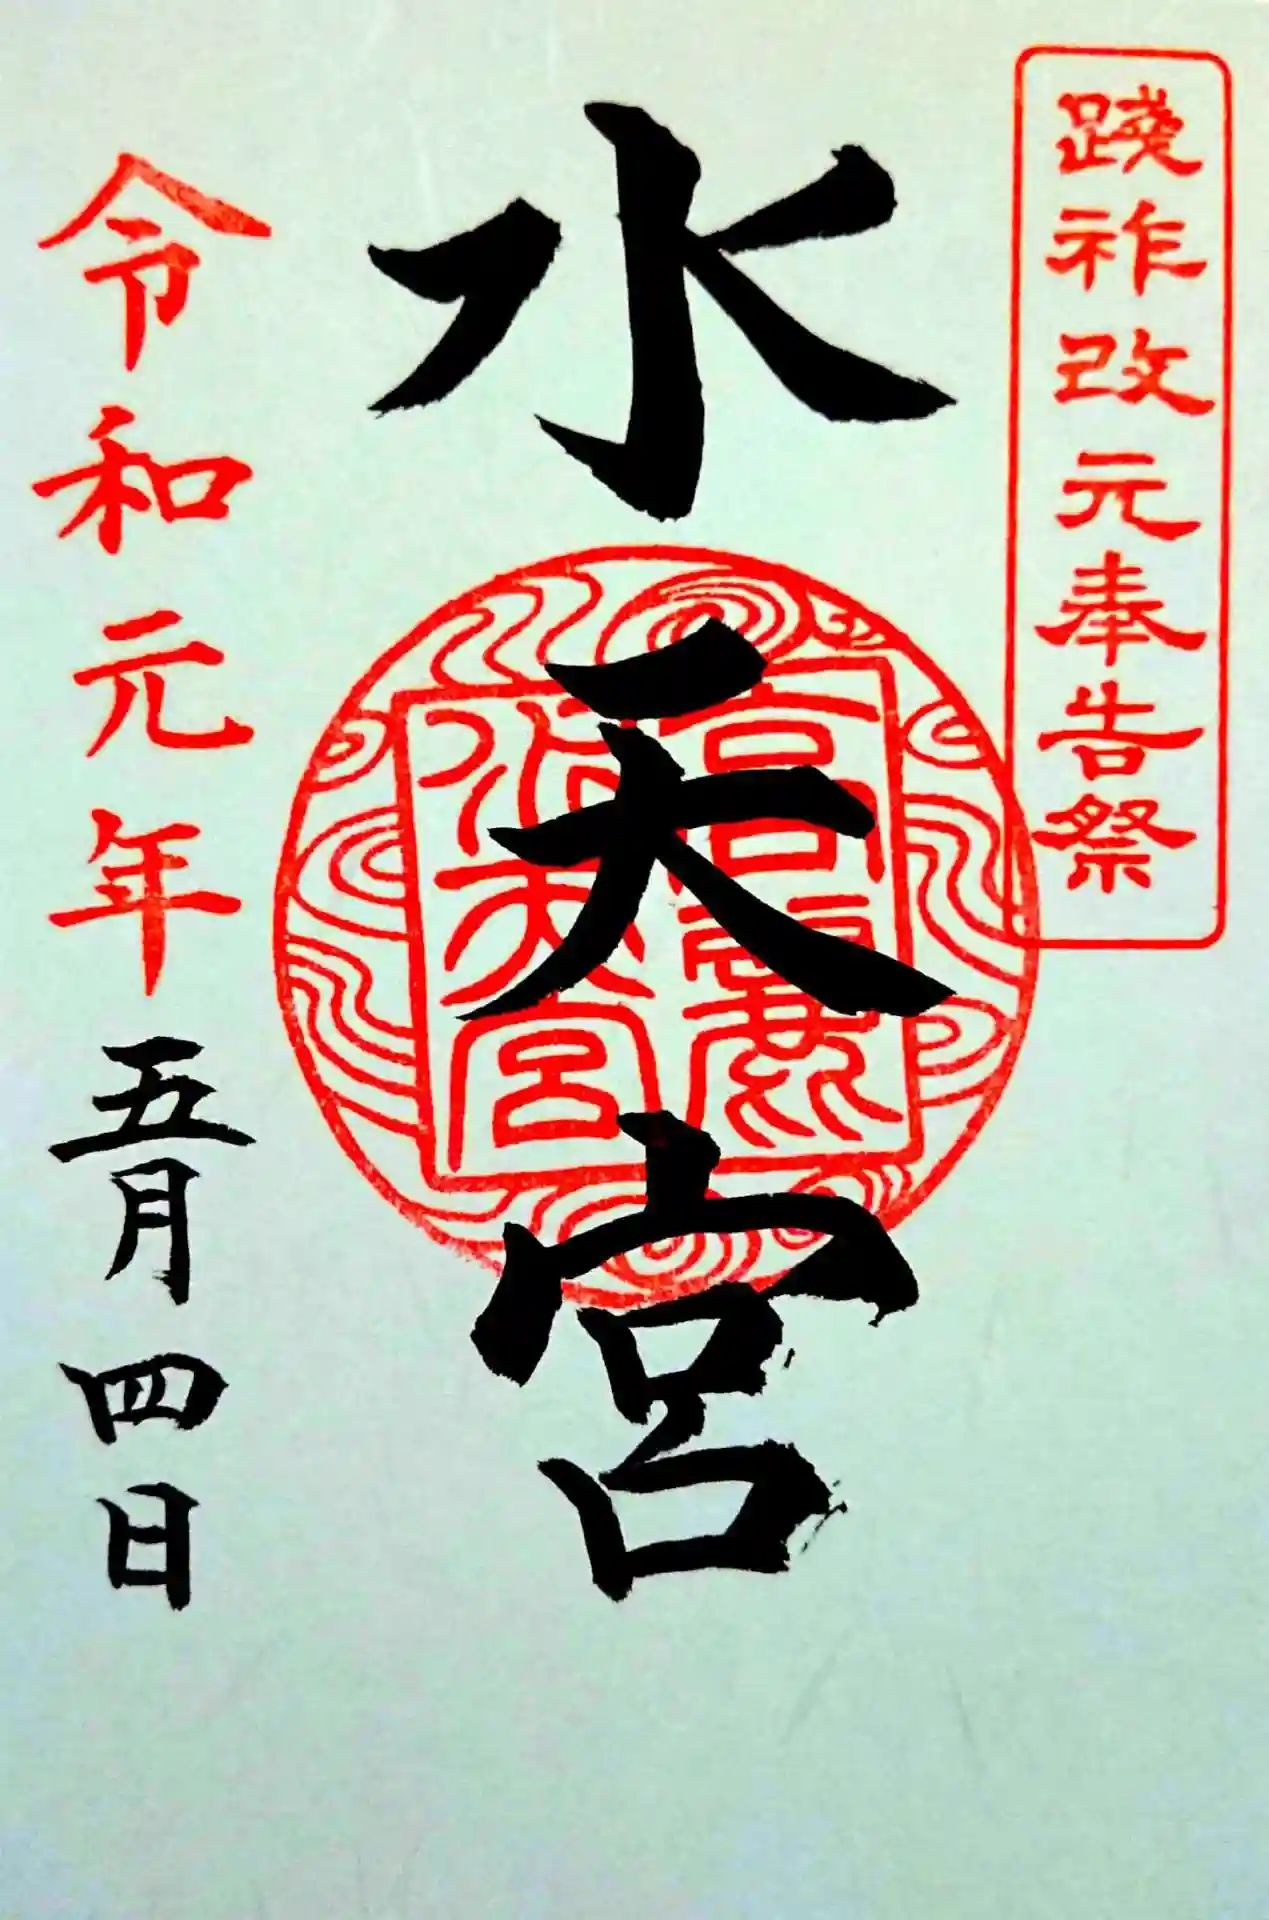 踐祚改元奉告祭
水天宮
令和元年五月四日